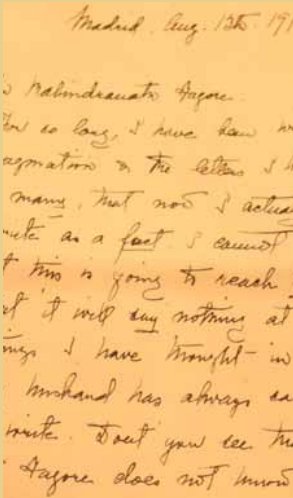 Madrid. Aug. 13th. 191
Rabindranath Tagore.
For so long, I have been w
agination & the letters I h
many, that now I actua
rite as a fact. I cannot
t this is going to reach
t it will say nothing at
ings I have thought in
husband has always sa
write. Don't you see th
Tagore does not know